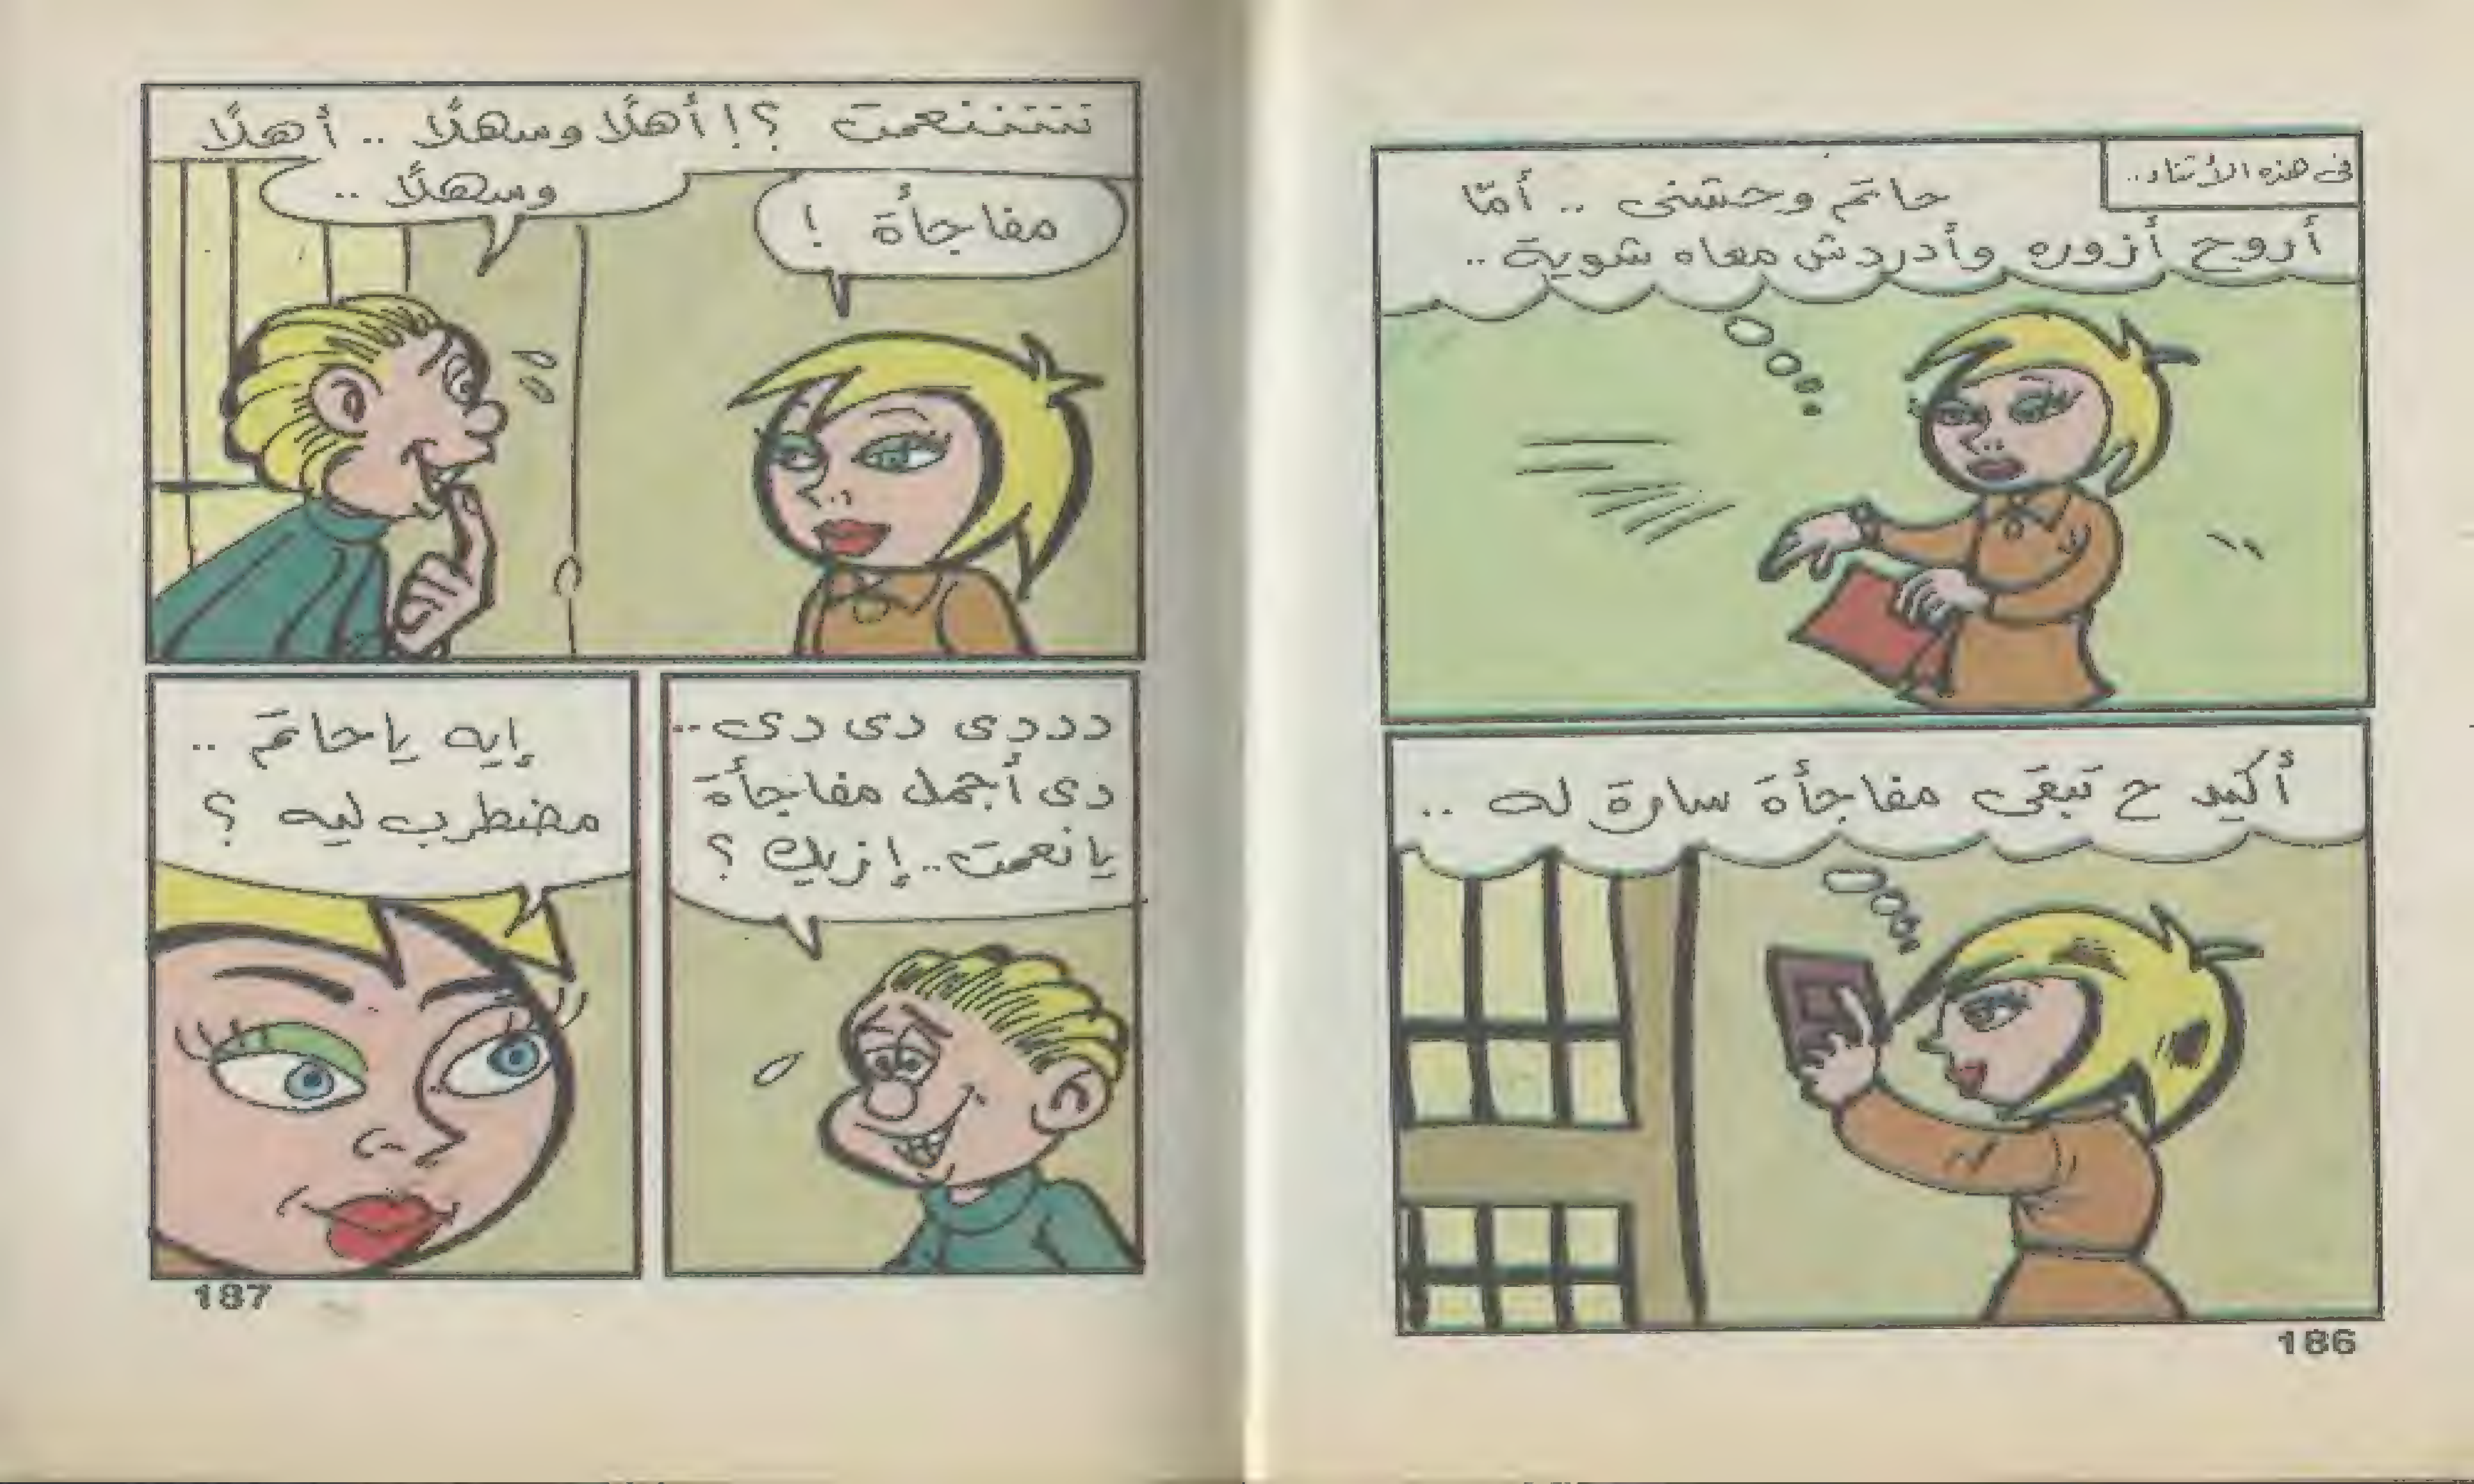 فى هذه الأثناء..
حاتم وحشنى .. أمّا
أروح أزوره وأدردش معاه شوية..
أكيد ح تبقى مفاجأة سارة له ..
186
مفاجأة !
نننننعمت ؟! أهلًا وسهلًا .. أهلًا
وسهلًا ..
دددى دى دى..
دى أجمل مفاجأة
يا نعمت.. إزيك ؟
إيه يا حاتم ..
مضطرب ليه ؟
187